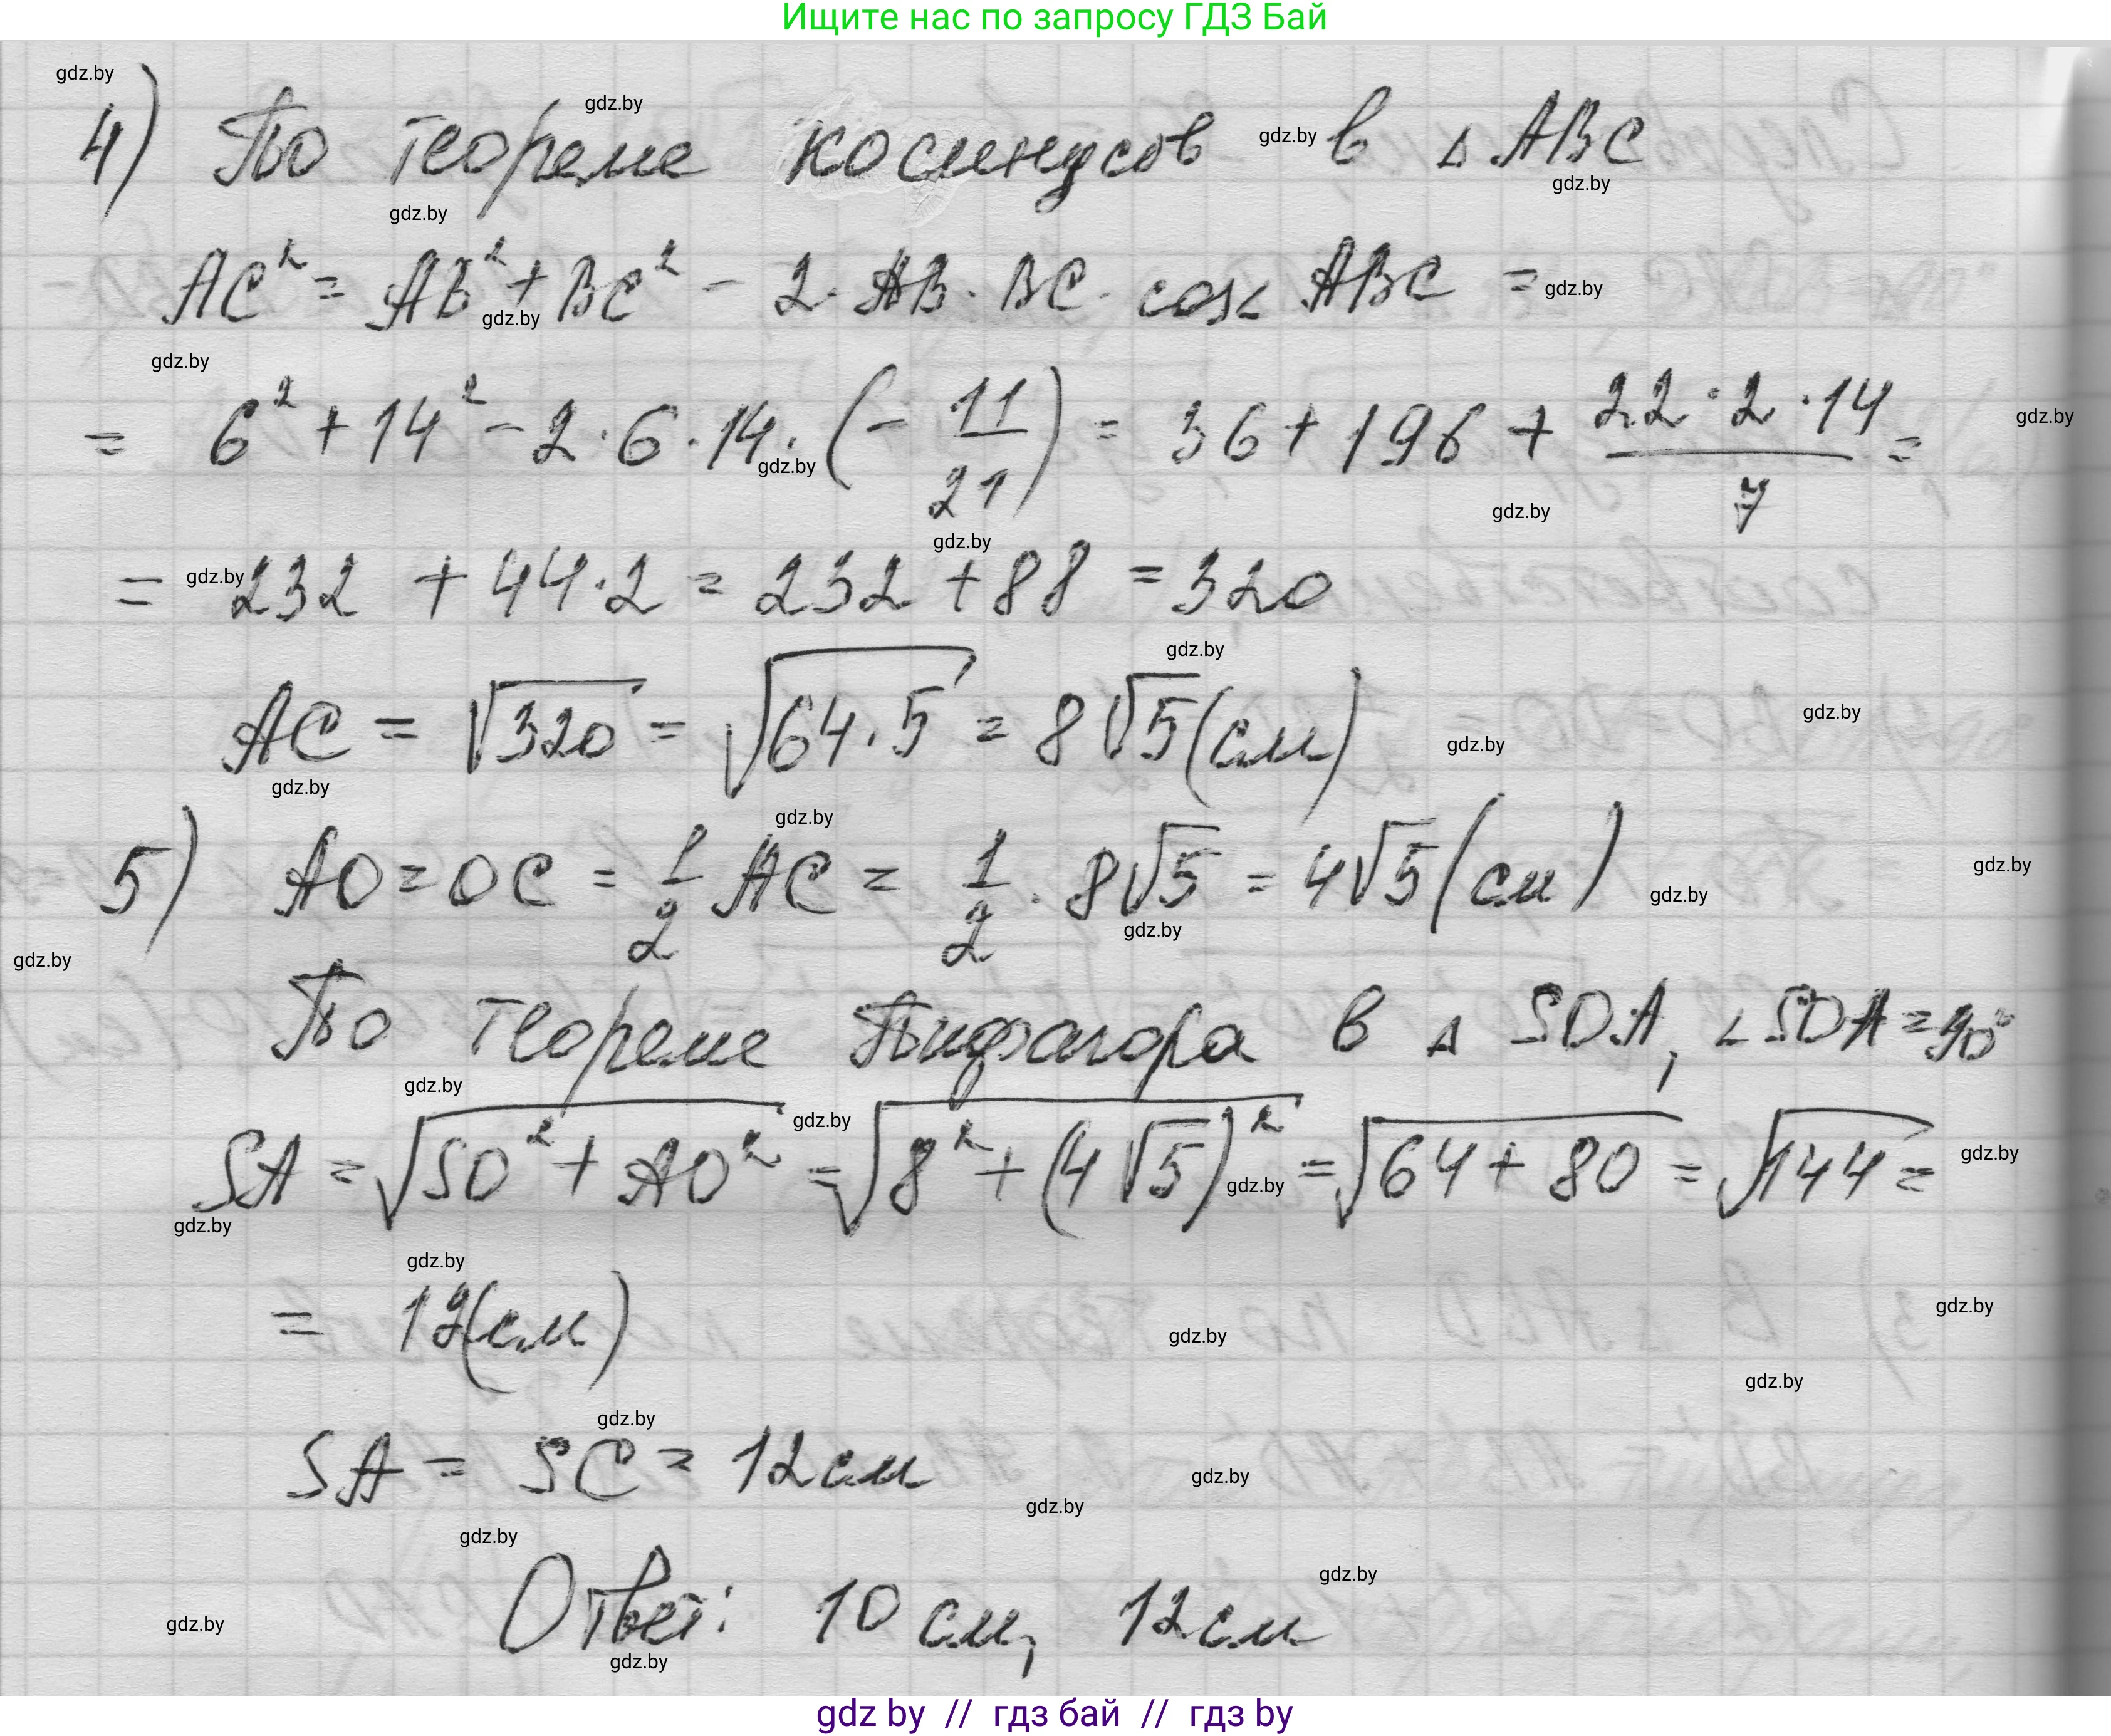 Ищите нас по запросу ГДЗ Бай
4) По теореме косинусов в △ ABC
AC² = AB² + BC² - 2 · AB · BC · cos∠ ABC =
= 6² + 14² - 2 · 6 · 14 · (- 11/21) = 36 + 196 + 22 · 2 · 14/7 =
= 232 + 44 · 2 = 232 + 88 = 320
AC = √320 = √64 · 5 = 8√5 (см)
5) AO = OC = 1/2 AC = 1/2 · 8√5 = 4√5 (см)
По теореме Пифагора в △ SOA, ∠ SOA = 90°
SA = √SO² + AO² = √8² + (4√5)² = √64 + 80 = √144 =
= 12 (см)
SA = SC = 12 см
Ответ: 10 см, 12 см
gdz by // гдз бай // гдз by